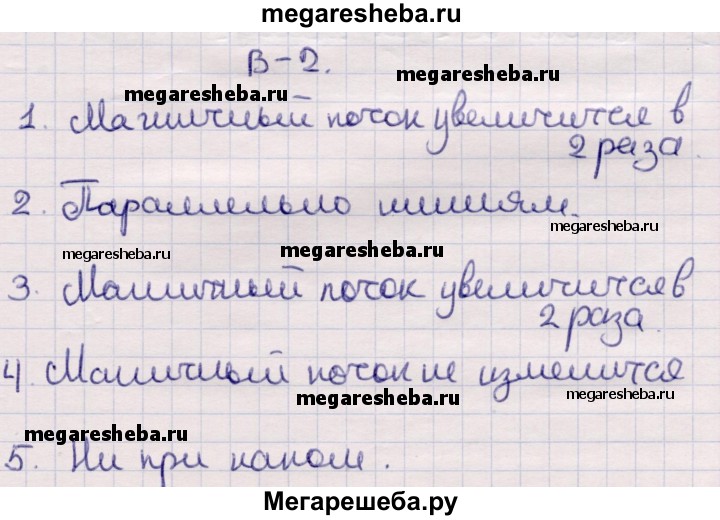 megaresheba.ru
В-2.
megaresheba.ru
megaresheba.ru
1. Магнитный поток увеличится в
2 раза.
2. Параллельно линиям.
megaresheba.ru
megaresheba.ru
3. Магнитный поток увеличится в
2 раза.
megaresheba.ru
4. Магнитный поток не изменится
megaresheba.ru
megaresheba.ru
megaresheba.ru
5. Ни при каком.
Мегарешеба.ру